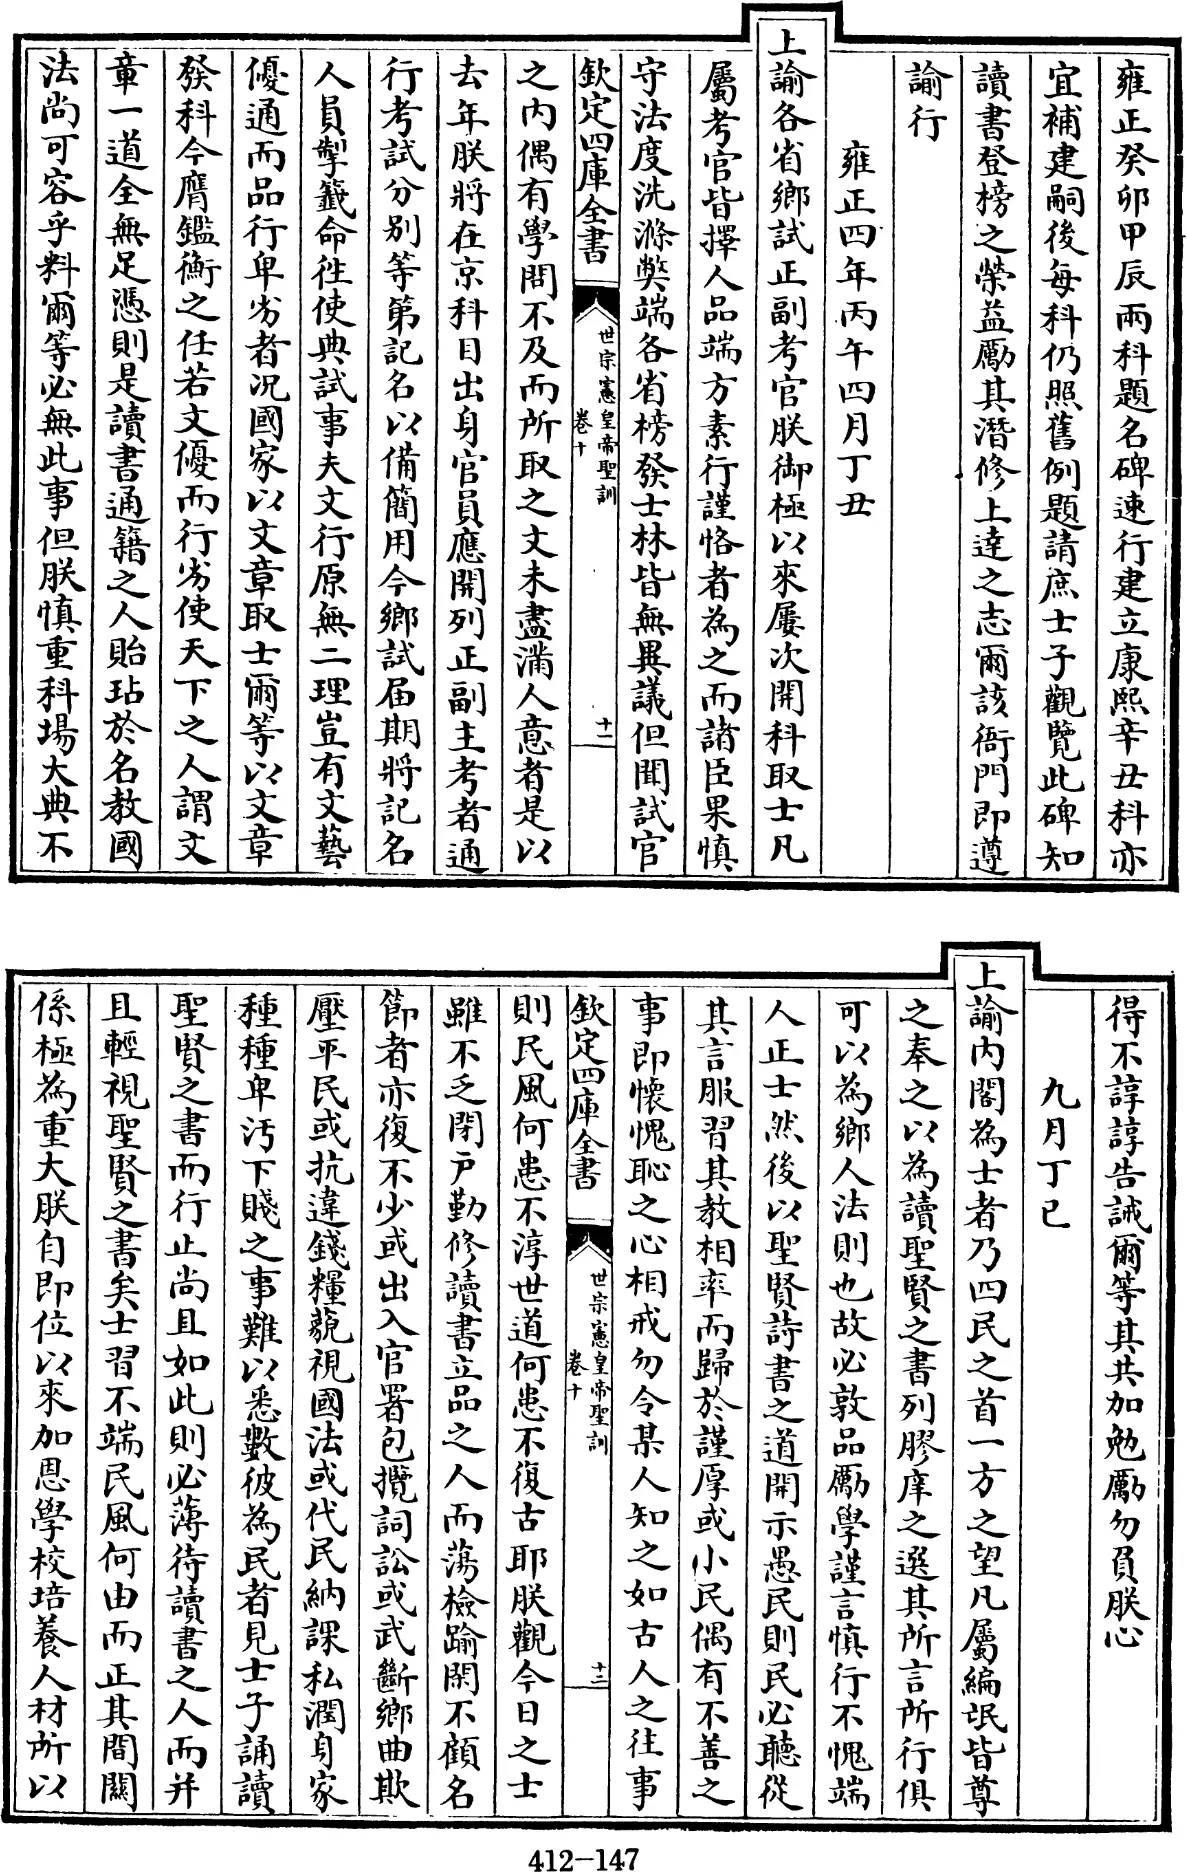 雍正癸卯甲辰兩科題名碑速行建立康熙辛丑科亦
宜補建嗣後每科仍照舊例題請庶士子觀覽此碑知
讀書登榜之榮益勵其潛修上達之志爾該衙門即遵
諭行
雍正四年丙午四月丁丑
上諭各省鄉試正副考官朕御極以來屢次開科取士凡
屬考官皆擇人品端方素行謹恪者為之而諸臣果慎
守法度洗滌弊端各省榜發士林皆無異議但聞試官
欽定四庫全書
世宗憲皇帝聖訓
卷十
十一
之内偶有學問不及而所取之文未盡滿人意者是以
去年朕將在京科目出身官員應開列正副主考者通
行考試分別等第記名以備簡用今鄉試届期將記名
人員掣籤命徃使典試事夫文行原無二理豈有文藝
優通而品行卑劣者况國家以文章取士爾等以文章
發科今膺鑑衡之任若文優而行劣使天下之人謂文
章一道全無足憑則是讀書通籍之人貽玷於名教國
法尚可容乎料爾等必無此事但朕慎重科場大典不
得不諄諄告誡爾等其共加勉勵勿負朕心
九月丁巳
上諭内閣為士者乃四民之首一方之望凡屬編氓皆尊
之奉之以為讀聖賢之書列膠庠之選其所言所行俱
可以為鄉人法則也故必敦品勵學謹言慎行不愧端
人正士然後以聖賢詩書之道開示愚民則民必聽從
其言服習其教相率而歸於謹厚或小民偶有不善之
事即懷愧恥之心相戒勿令某人知之如古人之往事
欽定四庫全書
世宗憲皇帝聖訓
卷十
十二
則民風何患不淳世道何患不復古耶朕觀今日之士
雖不乏閉户勤修讀書立品之人而蕩檢踰閑不顧名
節者亦復不少或出入官署包攬詞訟或武斷鄉曲欺
壓平民或抗違錢糧藐視國法或代民納課私潤身家
種種卑汚下賤之事難以悉數彼為民者見士子誦讀
聖賢之書而行止尚且如此則必薄待讀書之人而并
且輕視聖賢之書矣士習不端民風何由而正其間關
係極為重大朕自即位以來加恩學校培養人材所以
412-147